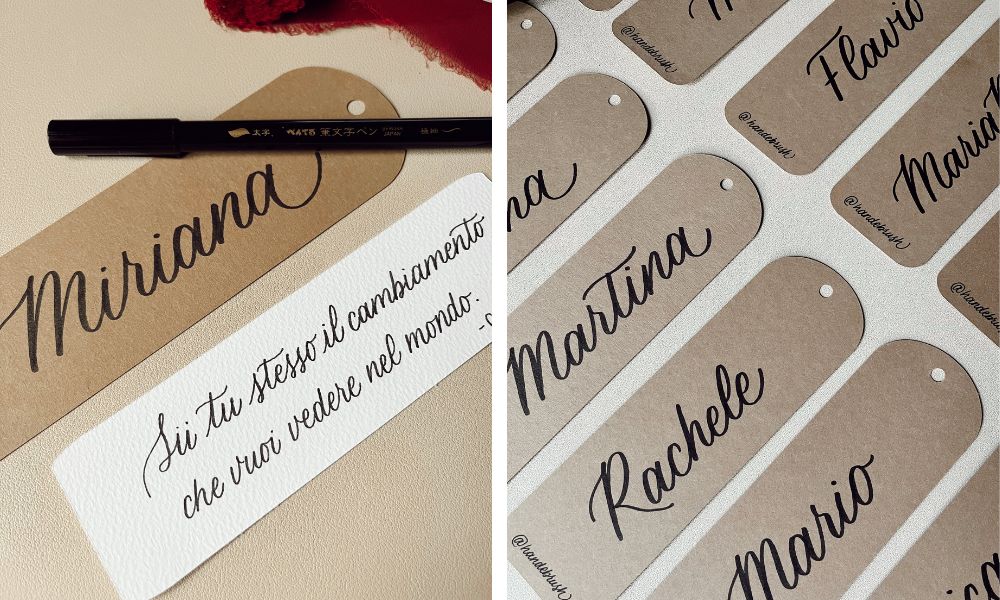 太字
ぺんてる 筆文字ペン
JAPAN
Miriana
Sii tu stesso il cambiamento
che vuoi vedere nel mondo.
@handebrush
Flavio
@handebrush
Maria
@handebrush
na
@handebrush
Martina
Rachele
@handebrush
Mario